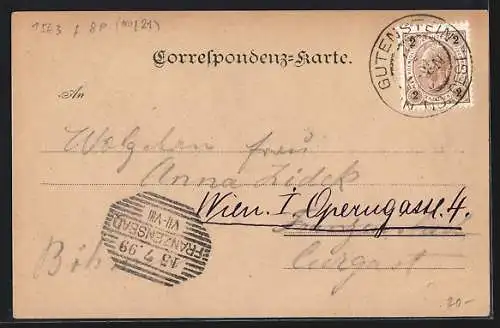 1563 f 8P (m/21)
Correspondenz-Karte.
GUTENSTEIN
2 2
2 2
An
Wolgeboren Frau
Anna Zidek
Wien. I Operngasse 4.
Curgast
Böh
FRANZENSBAD
VII-VIII
15.7.99
20-